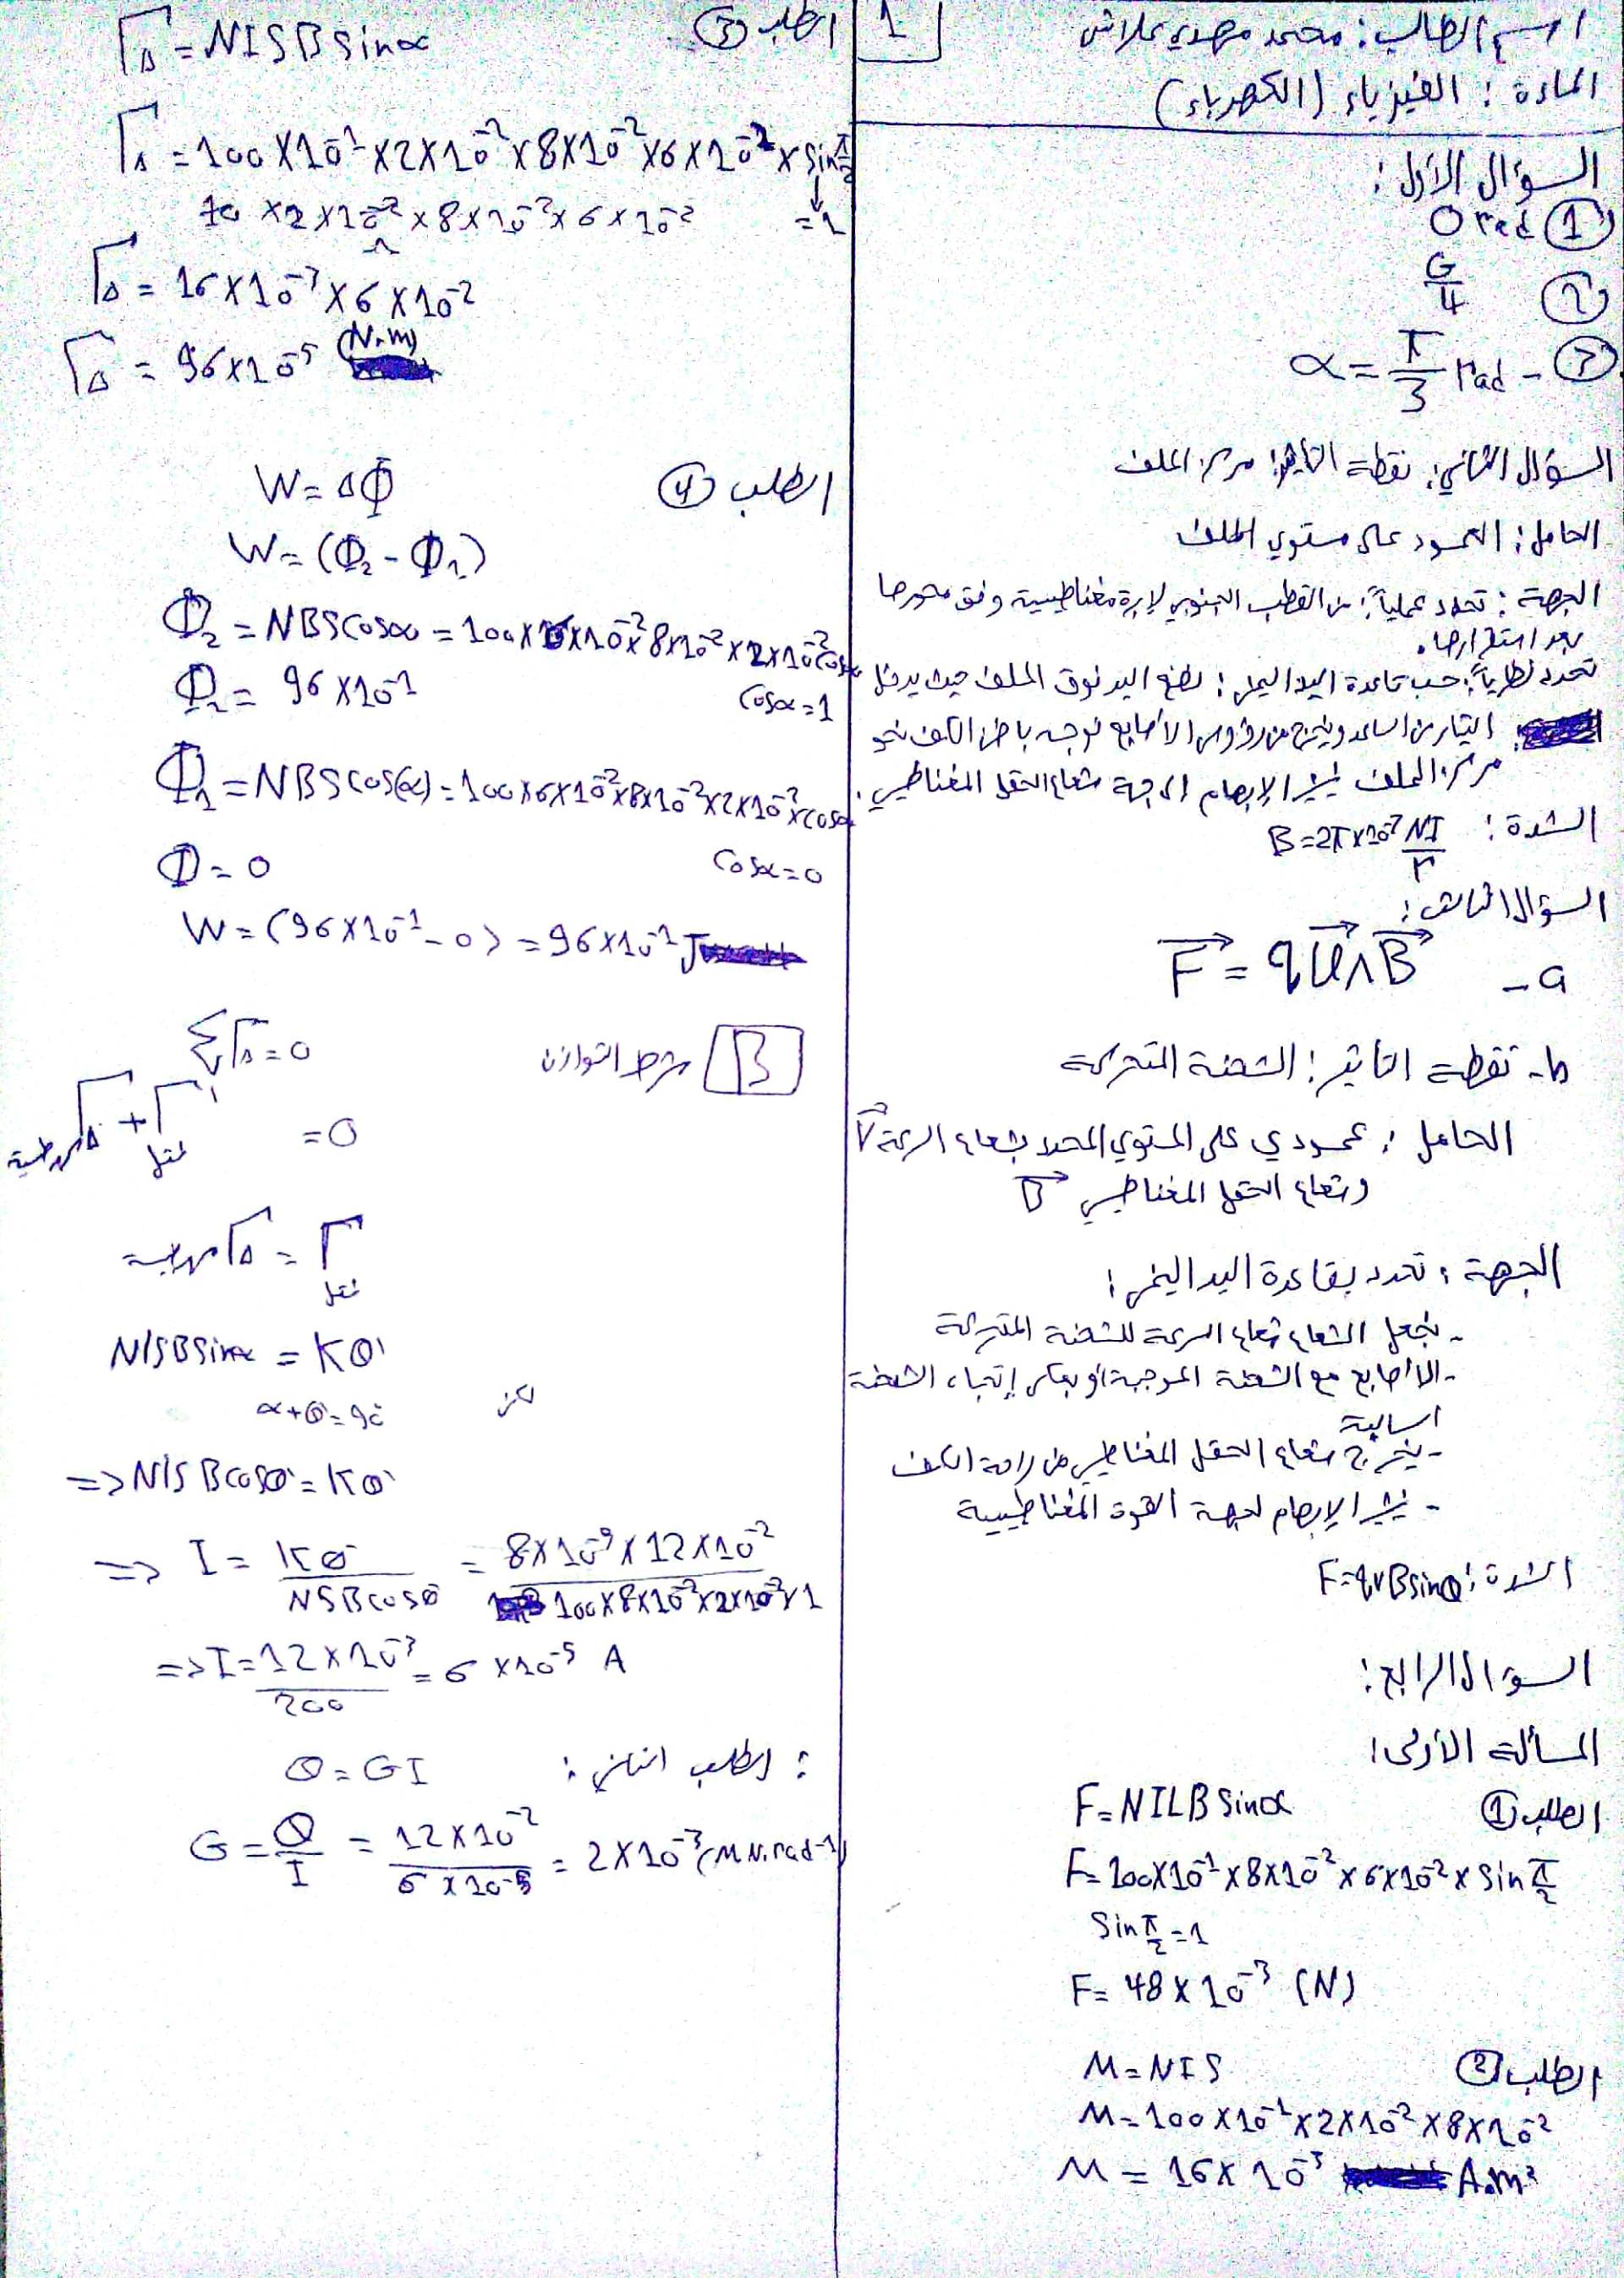 1
اسم الطالب: محمد مهدي علاش
المادة: الفيزياء (الكهرباء)
السؤال الأول:
① 0 rad
② G/4
③ - α = π/3 rad
السؤال الثاني: نقطة التأثير: مركز الملف
الحامل: العمود على مستوي الملف
الجهة: تحدد عملياً: من القطب الجنوبي لإبرة مغناطيسية وفق محورها
بعد استقرارها.
تحدد نظرياً: حسب قاعدة اليد اليمنى: نضع اليد فوق الملف حيث يدخل
التيار من الساعد ويخرج من رؤوس الأصابع نوجه باطن الكف نحو
مركز الملف يشير الإبهام إلى جهة شعاع الحقل المغناطيسي.
الشدة: B=2π×10⁻⁷ NI/r
السؤال الثالث:
a- F⃗ = qv⃗∧B⃗
b- نقطة التأثير: الشحنة المتحركة
الحامل: عمودي على المستوي المحدد بشعاع السرعة v⃗
وشعاع الحقل المغناطيسي B⃗
الجهة: تحدد بقاعدة اليد اليمنى:
- نجعل الشعاع شعاع السرعة للشحنة المتحركة
- الأصابع مع الشحنة الموجبة أو بعكس إتجاه الشحنة
السالبة
- يخرج شعاع الحقل المغناطيسي من راحة الكف
- يشير الإبهام لجهة القوة المغناطيسية
الشدة: F=qvBsinθ
السؤال الرابع:
المسألة الأولى:
الطلب ① F=NILB sinα
F=100×10⁻¹×8×10⁻²×6×10⁻²× sin π/2
sin π/2 =1
F= 48×10⁻³ (N)
الطلب ② M=NIS
M=100×10⁻¹×2×10⁻²×8×10⁻²
M = 16×10⁻³ A.m²
الطلب ③ Γ_Δ = NISB sinα
Γ_Δ = 100×10⁻¹×2×10⁻²×8×10⁻²×6×10⁻²× sin π/2
10×2×10⁻²×8×10⁻²×6×10⁻² =1
Γ_Δ = 16×10⁻³×6×10⁻²
Γ_Δ = 96×10⁻⁵ (N.m)
الطلب ④ W=ΔΦ
W=(Φ₂-Φ₁)
Φ₂=NBScosα=100×6×10⁻²×8×10⁻²×2×10⁻²cosα
Φ₂= 96×10⁻¹ cosα=1
Φ₁=NBScos(α)=100×6×10⁻²×8×10⁻²×2×10⁻²×cosα
Φ=0 cosα=0
W=(96×10⁻¹-0)=96×10⁻¹ J
B شرط التوازن ΣΓ_Δ=0
Γ_Δ كهرطيسية + Γ' فتل =0
Γ_Δ كهرطيسية = Γ فتل
NISBsinα = Kθ'
لكن α+θ'=90
=> NISBcosθ'=Kθ'
=> I = Kθ'/NSBcosθ' = 8×10⁻⁹×12×10⁻²/100×8×10⁻²×2×10⁻²×1
=> I=12×10⁻³/200 = 6×10⁻⁵ A
الطلب الثاني: θ=GI
G=θ/I = 12×10⁻²/6×10⁻⁵ = 2×10⁻³